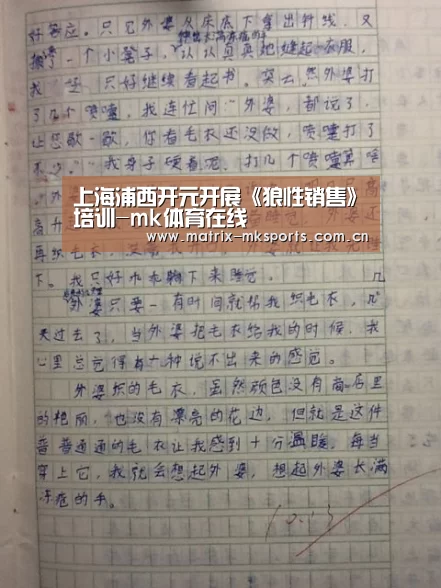 好答应。只见外婆从床底下拿出针线,又
搬了一个小凳子,认认真真地缝起衣服,
我 只好继续看起书。突然外婆打
了几个喷嚏,我连忙问:"外婆,都说了,
让您歇一歇,你看毛衣还没做,喷嚏打了
不少。""我身子硬着呢,打几个喷嚏算啥
上海浦西开元开展《狼性销售》
培训-mk体育在线
www.matrix-mksports.com.cn
再织毛衣,
下。我只好乖乖躺下来睡觉。
外婆只要一有时间就帮我织毛衣,几
天过去了,当外婆把毛衣给我的时候,我
心里总觉得有一种说不出来的感觉。
外婆织的毛衣,虽然颜色没有商店里
的艳丽,也没有漂亮的花边,但就是这件
普普通通的毛衣让我感到十分温暖,每当
穿上它,我就会想起外婆,想起外婆长满
冻疮的手。
10.13